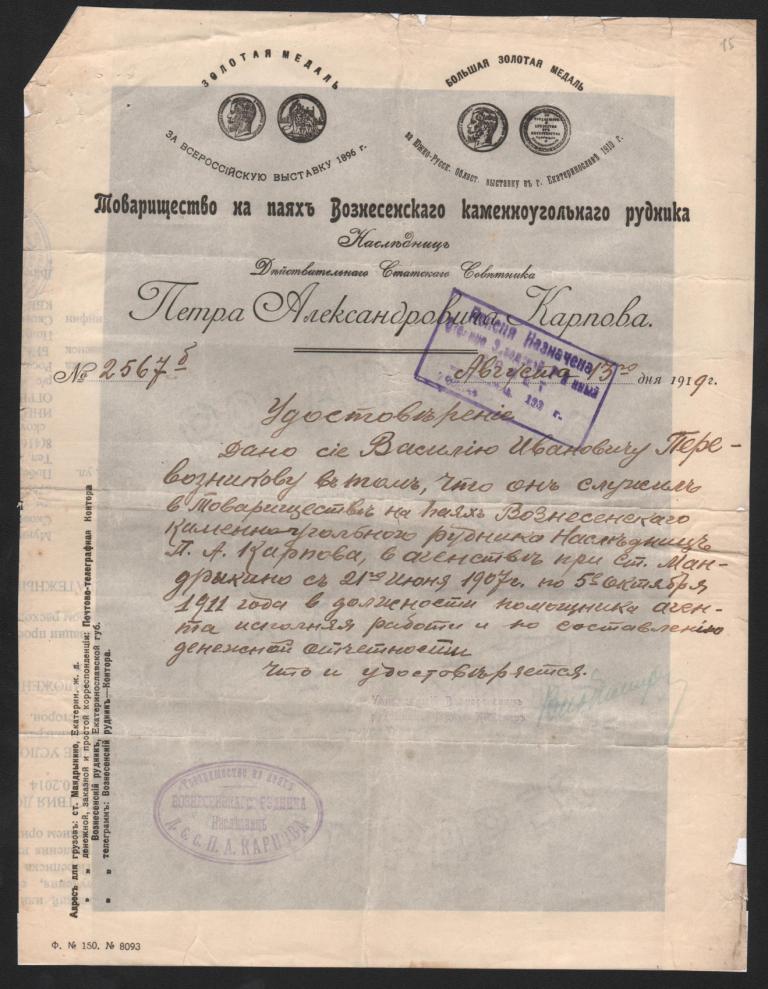 15
ЗОЛОТАЯ МЕДАЛЬ
ЗА ВСЕРОССІЙСКУЮ ВЫСТАВКУ 1896 г.
БОЛЬШАЯ ЗОЛОТАЯ МЕДАЛЬ
на Южно-Русск. област. выставку въ г. Екатеринославѣ 1910 г.
Товарищество на паяхъ Вознесенскаго каменноугольнаго рудника
Наслѣдницъ
Дѣйствительнаго Статскаго Совѣтника
Петра Александровича Карпова.
Пенсия Назначена
193 г.
№ 2567 б
Августа 13го дня 1919 г.
Удостовѣреніе
Дано сіе Василію Ивановичу Пере-
возникову въ томъ, что онъ служилъ
в Товариществѣ на паяхъ Вознесенскаго
каменно-угольного рудника Наслѣдницъ
П. А. Карпова, в агенствѣ при ст. Ман-
дрыкино съ 21го июня 1907 г. по 5е октября
1911 года в должности помощника аген-
та исполняя работы и по составлению
денежной отчетности
Что и удостовѣряется.
Вознесенскаго
Товарищество на паяхъ
ВОЗНЕСЕНСКАГО РУДНИКА
Наслѣдницъ
Д. С. С. П. А. КАРПОВА
Адресъ для грузовъ: ст. Мандрыкино, Екатерин. ж. д.
" " денежной, заказной и простой корреспонденціи: Почтово-телеграфная Контора
Вознесенскій рудникъ, Екатеринославской губ.
" " телеграммъ: Вознесенскій рудникъ—Контора.
Ф. № 150. № 8093